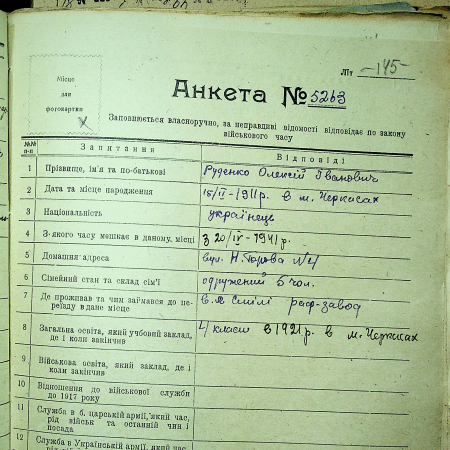 Літ -145-
Місце
для
фотокартки
Анкета № 5263
Заповнюється власноручно, за неправдиві відомості відповідає по закону
військового часу
№№
п-п
Запитання
Відповіді
1 Прізвище, ім'я та по-батькові Руденко Олексій Іванович
2 Дата та місце народження 15/II-1911р. в м. Черкасах
3 Національність українець
4 З-якого часу мешкає в даному, місці з 20/IV-1941р.
5 Домашня адреса вул. №4
6 Сімейний стан та склад сім'ї одружений 5 чол.
7 Де проживав та чим займався до пе-
реїзду в дане місце в м. Смілі раф-завод
8 Загальна освіта, який учбовий заклад,
де і коли закінчив 4 класи в 1921р. в м. Черкасах
9 Військова освіта, який заклад, де і
коли закінчив
10 Відношення до військової служби
до 1917 року
11 Служба в б. царській армії, який час,
рід військ та останній чин і
посада
12 Служба в Українській армії, який час,